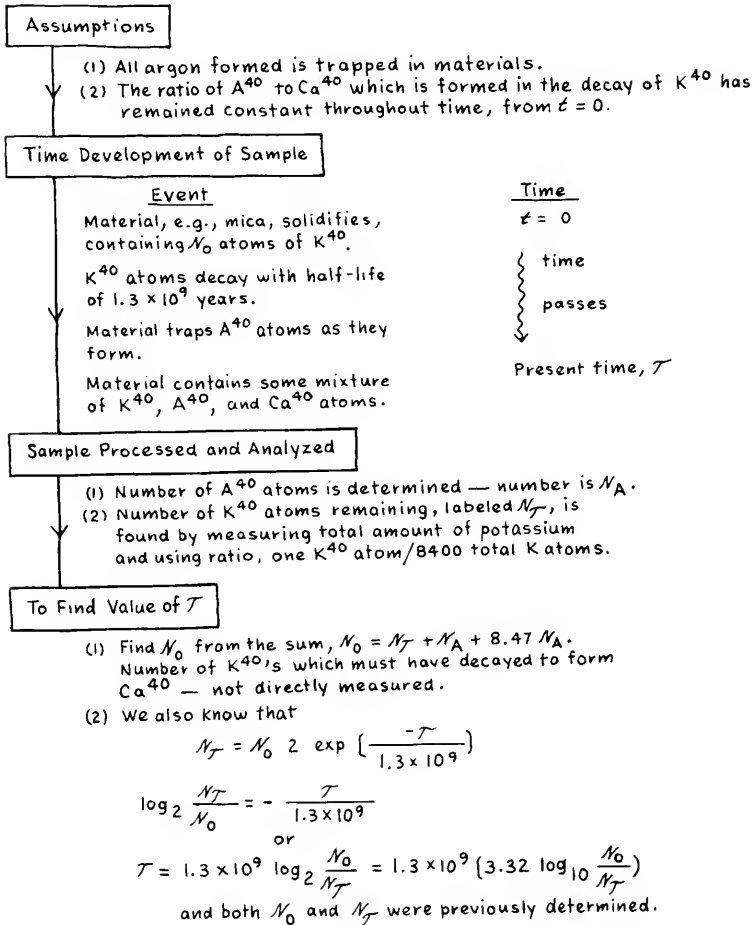 Assumptions
(1) All argon formed is trapped in materials.
(2) The ratio of A⁴⁰ to Ca⁴⁰ which is formed in the decay of K⁴⁰ has
remained constant throughout time, from t = 0.
Time Development of Sample
Event
Material, e.g., mica, solidifies,
containing N₀ atoms of K⁴⁰.
K⁴⁰ atoms decay with half-life
of 1.3 × 10⁹ years.
Material traps A⁴⁰ atoms as they
form.
Material contains some mixture
of K⁴⁰, A⁴⁰, and Ca⁴⁰ atoms.
Time
t = 0
time
passes
Present time, T
Sample Processed and Analyzed
(1) Number of A⁴⁰ atoms is determined — number is N_A.
(2) Number of K⁴⁰ atoms remaining, labeled N_T, is
found by measuring total amount of potassium
and using ratio, one K⁴⁰ atom/8400 total K atoms.
To Find Value of T
(1) Find N₀ from the sum, N₀ = N_T + N_A + 8.47 N_A.
Number of K⁴⁰'s which must have decayed to form
Ca⁴⁰ — not directly measured.
(2) We also know that
N_T = N₀ 2 exp (-T / 1.3 × 10⁹)
log₂ N_T / N₀ = - T / 1.3 × 10⁹
or
T = 1.3 × 10⁹ log₂ N₀ / N_T = 1.3 × 10⁹ (3.32 log₁₀ N₀ / N_T)
and both N₀ and N_T were previously determined.